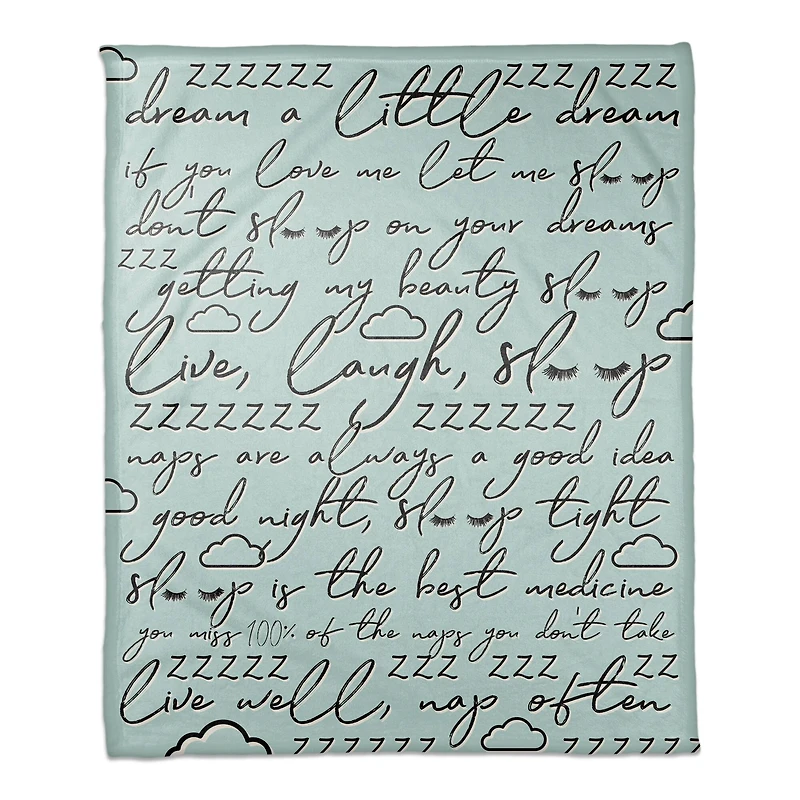 ZZZZZZ ZZZ ZZZ
dream a little dream
if you love me let me sleep
don't sleep on your dreams
ZZZ
getting my beauty sleep
live, laugh, sleep
ZZZZZZZ ZZZZZZ
naps are always a good idea
good night, sleep tight
sleep is the best medicine
you miss 100% of the naps you don't take
ZZZZZ ZZZ ZZZ ZZ
live well, nap often
ZZZZZZ ZZZZZZ